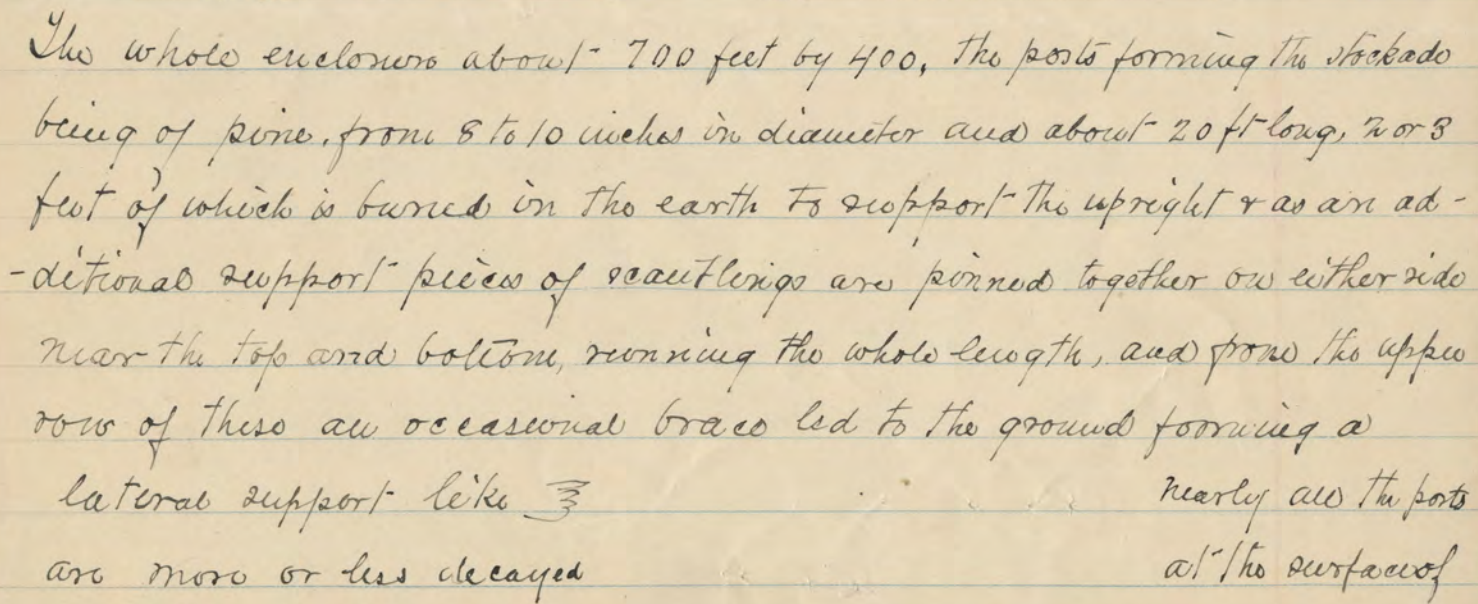 The whole enclosure about 700 feet by 400, the posts forming the stockade
being of pine, from 8 to 10 inches in diameter and about 20 ft long, 2 or 3
feet of which is buried in the earth to support the upright & as an ad-
-ditional support pieces of scantlings are pinned together on either side
near the top and bottom, running the whole length, and from the upper
row of these an occasional brace led to the ground forming a
lateral support like nearly all the posts
are more or less decayed at the surface of